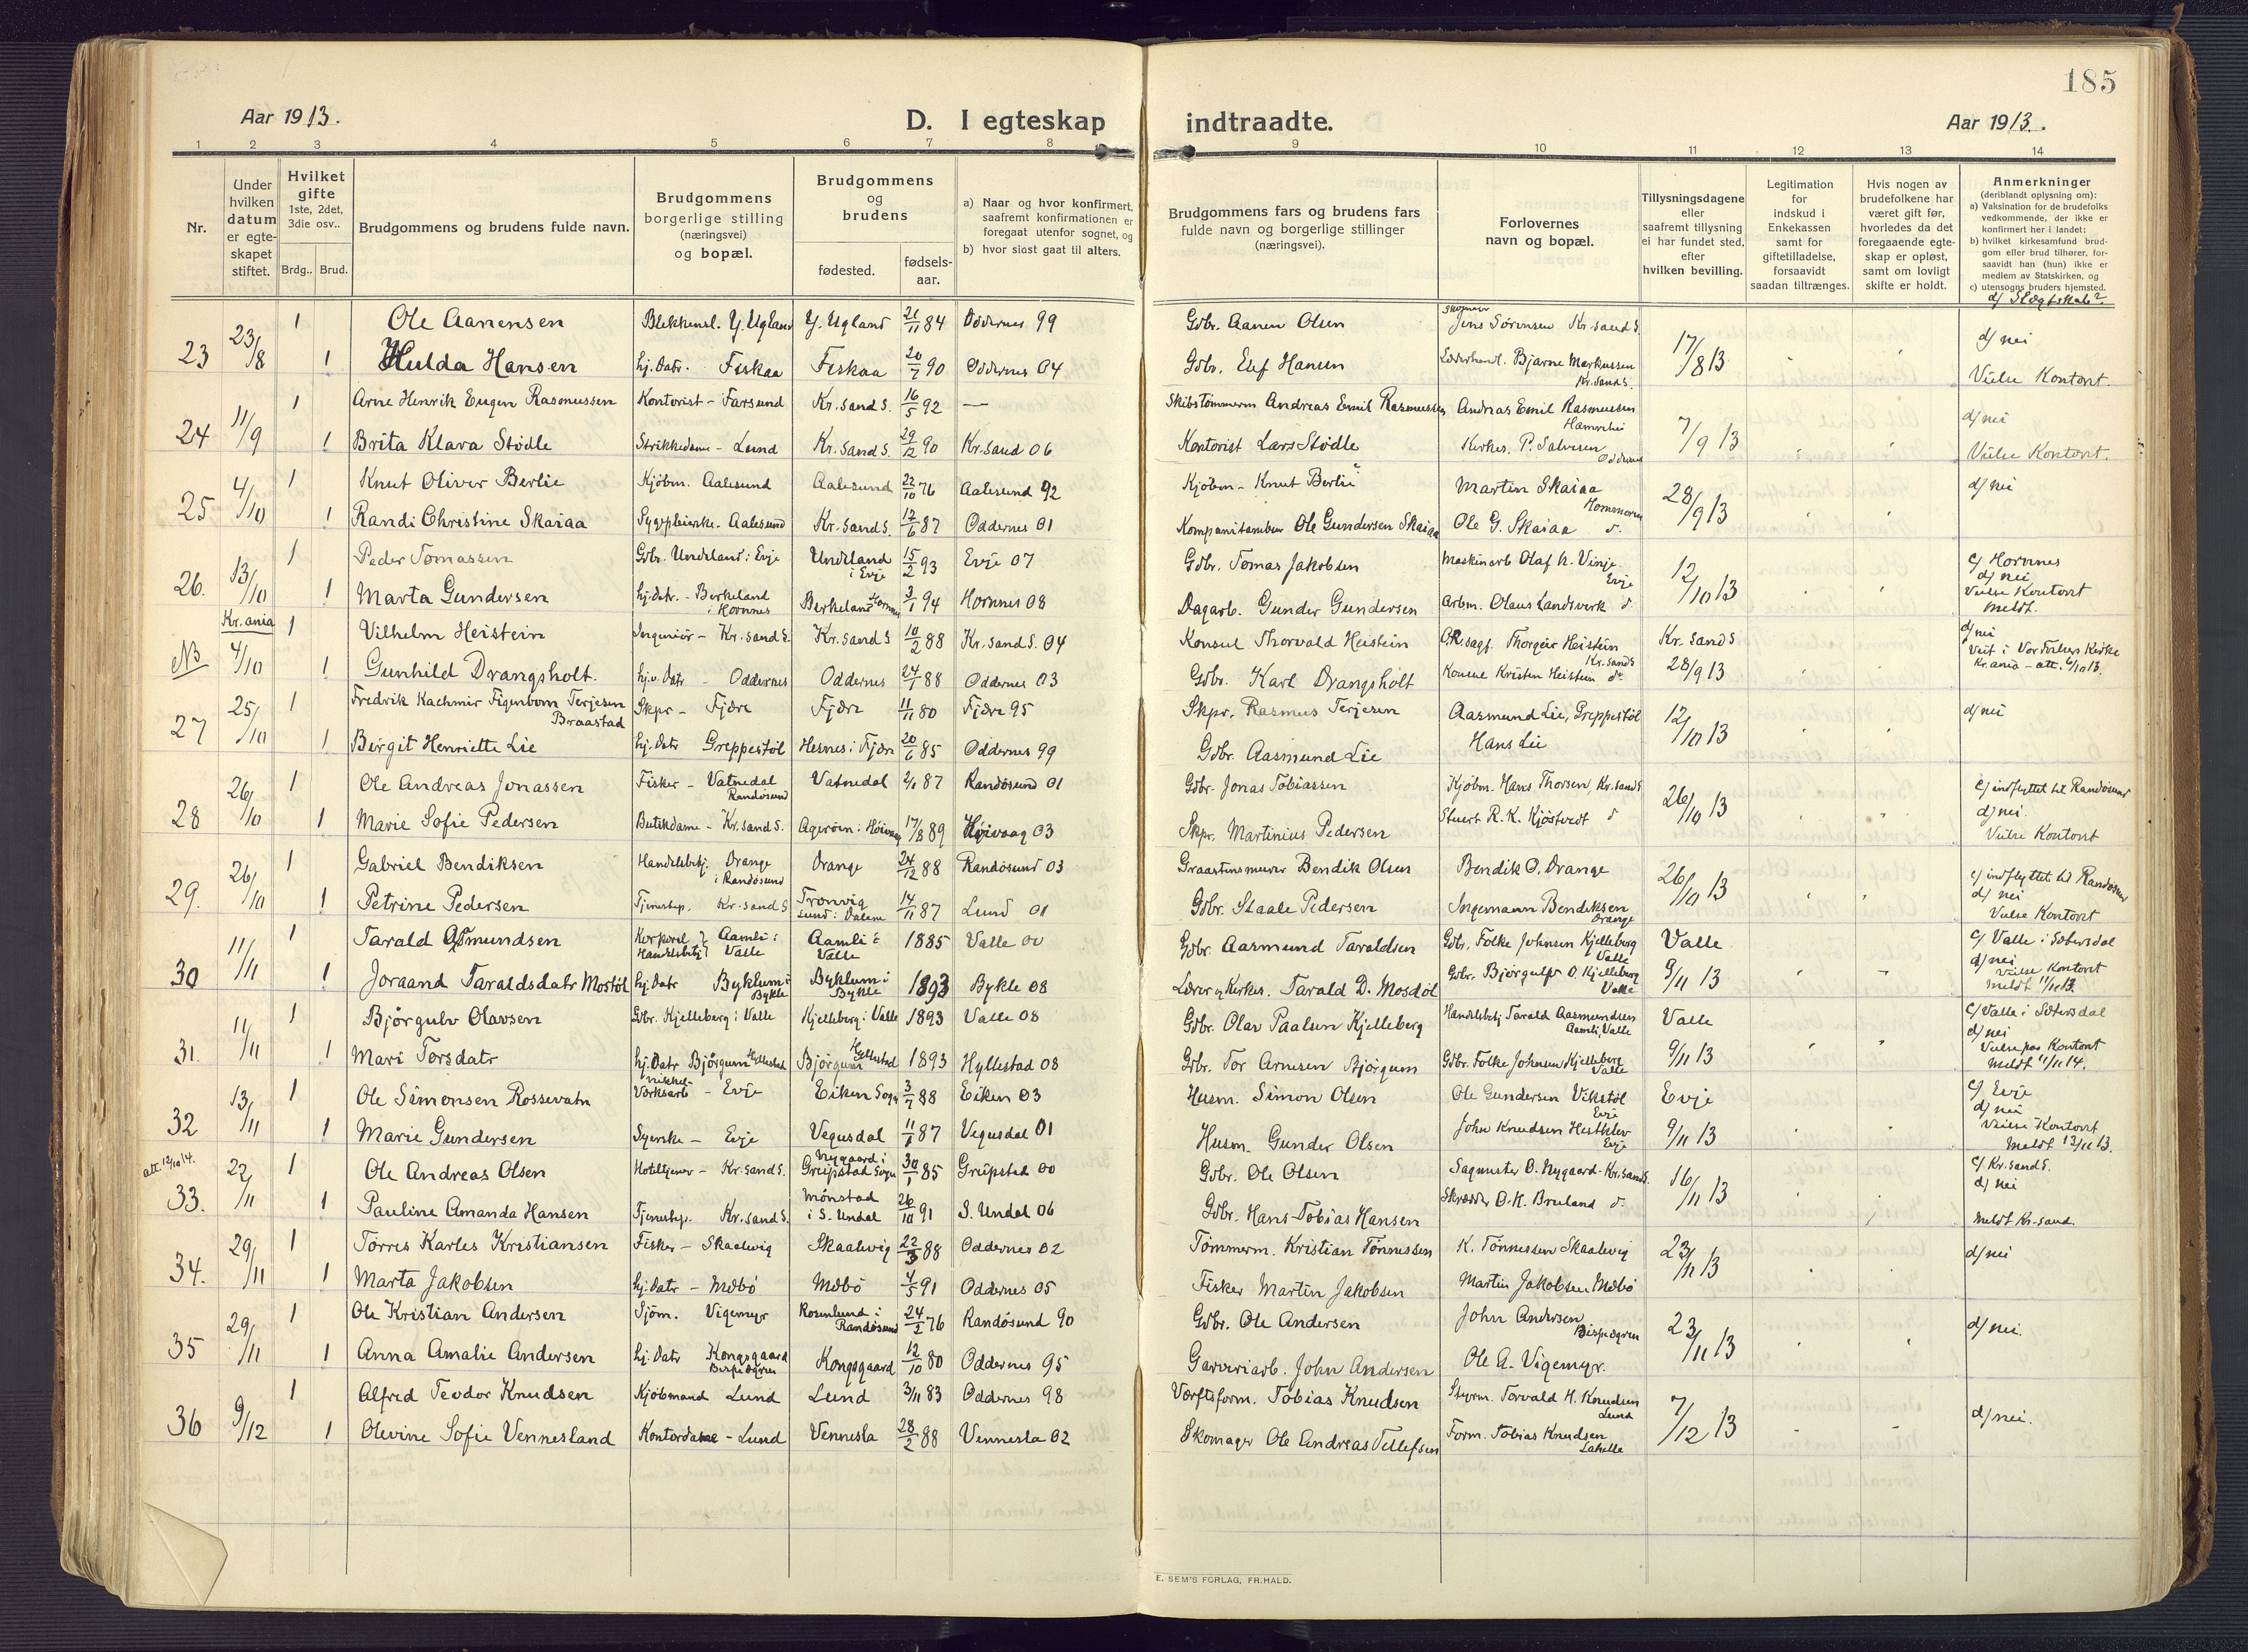 185
Aar 1913.
D. I egteskap
indtraadte.
Aar 1913.
1 2 3 4 5 6 7 8 9 10 11 12 13 14
Nr.
Under hvilken datum er egteskapet stiftet.
Hvilket gifte 1ste, 2det, 3die osv..
Brdg.. Brud.
Brudgommens og brudens fulde navn.
Brudgommens borgerlige stilling (næringsvei) og bopæl.
Brudgommens og brudens
fødested.
fødsels-aar.
a) Naar og hvor konfirmert, saafremt konfirmationen er foregaat utenfor sognet, og
b) hvor sidst gaat til alters.
Brudgommens fars og brudens fars fulde navn og borgerlige stillinger (næringsvei).
Forlovernes navn og bopæl.
Tillysningsdagene eller saafremt tillysning ei har fundet sted, efter hvilken bevilling.
Legitimation for indskud i Enkekassen samt for giftetilladelse, forsaavidt saadan tiltrænges.
Hvis nogen av brudefolkene har været gift før, hvorledes da det foregaaende egteskap er opløst, samt om lovligt skifte er holdt.
Anmerkninger (deriblandt oplysning om):
a) Vaksination for de brudefolks vedkommende, der ikke er konfirmert her i landet;
b) hvilket kirkesamfund brudgom eller brud tilhører, forsaavidt han (hun) ikke er medlem av Statskirken, og
c) utensogns bruders hjemsted.
d/ Slegtskab?
23 23/8 1 Ole Aanensen Blekkensl. Y. Ugland Y. Ugland 21/11 84 Oddernes 99 Gdbr. Aanen Olsen Jens Sørensen Kr.sand S. 17/8 13 d/ nei
1 Hulda Hansen hj. Datr. Fiskaa Fiskaa 20/7 90 Oddernes 04 Gdbr. Elef Hansen Bjarne Markussen Kr.sand S. Vielse Kontoret.
24 11/9 1 Arne Henrik Eugen Rasmussen Kontorist - Farsund Kr.sand S. 16/5 92 — Skibstømmerm Andreas Emil Rasmussen Andreas Emil Rasmussen 7/9 13 d/ nei
1 Brita Klara Stødle Strikkedame - Lund Kr.sand S. 29/12 90 Kr.sand 06 Kontorist Lars Stødle Kirkes. P. Salvesen Oddernes Vielse Kontoret.
25 4/10 1 Knut Oliver Berlie Kjöbm. Aalesund Aalesund 22/10 76 Aalesund 92 Kjöbm - Knut Berlie Martin Skaiaa 28/9 13 d/ nei
1 Randi Christine Skaiaa Sygepleierske - Aalesund Kr.sand S. 17/6 87 Oddernes 01 Ole Gundersen Skaiaa Ole G. Skaiaa d.
26. 13/10 1 Peder Tomassen Gdbr. Undeland i Evje Undeland i Evje 15/2 93 Evje 07 Gdbr. Tomas Jakobsen Maskinarb Olaf K. Vinje Evje 12/10 13 c/ Hornnes d/ nei
1 Marta Gundersen hj. datr. - Birkeland i Hornnes Birkeland Hornnes 3/1 94 Hornnes 08 Dagarb. Gunder Gundersen Arbm. Olaus Landsverk d. Vielse Kontoret Meldt.
Nb Kr.ania 4/10 1 Vilhelm Heistein Ingeniör - Kr.sand S. Kr.sand S 10/2 88 Kr.sand S. 04 Konsul Thorvald Heistein O.R.sagf. Thorgeir Heistein Kr.sand S Kr.sand S d/ nei
1 Gunhild Drangsholt. hj.v. datr - Oddernes Oddernes 24/1 88 Oddernes 03 Gdbr. Karl Drangsholt Kristen Heistein d. 28/9 13 Viet i Vor Frelsers Kirke Kr.ania - att. 4/10 13.
27 25/10 1 Fredrik Kachmir Figenbom Terjesen Braastad Skpr - Fjære Fjære 11/11 80 Fjære 95 Skpr. Rasmus Terjesen Aasmund Lie, Greppestöl 12/10 13 d/ nei
1 Birgit Henriette Lie hj. datr Greppestöl Hesnes i Fjære 20/6 85 Oddernes 99 Gdbr. Aasmund Lie Hans Lie
28 26/10 1 Ole Andreas Jonassen Fisker - Vatnedal Randösund Vatnedal 2/1 87 Randösund 01 Gdbr. Jonas Tobiassen Kjöbm. Hans Thorsen, Kr.sand S 26/10 13 c/ indflyttet til Randösund
1 Marie Sofie Pedersen Butikdame - Kr.sand S. Ageröen i Höivaag 17/8 89 Höivaag 03 Skpr. Martinius Pedersen Stuert R. K. Kjöstvedt d d/ nei. Vielse Kontoret
29. 26/10 1 Gabriel Bendiksen Handelsbetj. Drange i Randösund Drange 24/12 88 Randösund 03 Graastensmurer Bendik Olsen Bendik O. Drange 26/10 13 c/ indflyttet til Randösund d/ nei
1 Petrine Pedersen Tjenestep. Kr.sand S Tronvig 14/11 87 Lund 01 Gdbr. Staale Pedersen Ingemann Bendiksen Drange Vielse Kontoret
30 11/11 1 Tarald Asmundsen Korporal & Handelsbetj. Aamli i Valle Aamli i Valle 1885 Valle 00 Gdbr Aasmund Taraldsen Gdbr. Folke Johnsen Kjelleberg Valle Valle c/ Valle i Setersdal d/ nei
1 Joraand Taraldsdatr Mostöl hj. datr Byklum i Bykle Byklum i Bykle 1893 Bykle 08 Lærer og Kirkes. Tarald D. Mosdøl Gdbr. Bjørgulv O. Kjelleberg Valle 9/11 13 Vielse Kontoret Meldt 11/11 13.
31. 11/11 1 Bjørgulv Olavsen Gdbr. Kjelleberg i Valle Kjelleberg i Valle 1893 Valle 08 Gdbr. Olav Paalsen Kjelleberg Handelsbetj Tarald Aasmundsen Aamli, Valle Valle c/ Valle i Setersdal d/ nei
1 Mari Torsdatr hj. Datr Bjørgum Hyllestad Bjørgum Hyllestad 1893 Hyllestad 08 Gdbr. Tor Arnesen Bjørgum Gdbr. Folke Johnsen Kjelleberg Valle 9/11 13 Vielse paa Kontoret Meldt 11/11 14.
32 13/11 1 Ole Simonsen Rossevatn Nikkel-Værksarb - Evje Eiken Sogn 3/7 88 Eiken 03 Husm. Simon Olsen Ole Gundersen Vikstöl Evje Evje c/ Evje d/ nei
1 Marie Gundersen Syerske - Evje Vegusdal 11/1 87 Vegusdal 01 Husm. Gunder Olsen John Knudsen Hestklev Evje 9/11 13 Vielse Kontoret Meldt 13/11 13.
att. 12/10 14. 33. 22/11 1 Ole Andreas Olsen Hoteltjener - Kr.sand S. Nygaard i Greipstad Sogn 30/1 85 Greipstad 00 Gdbr. Ole Olsen Sagmester O. Nygaard - Kr.sand S. 16/11 13 c/ Kr.sand S. d/ nei
1 Pauline Amanda Hansen Tjenestep. Kr.sand S. Mønstad i S. Undal 26/10 91 S. Undal 06 Gdbr. Hans Tobias Hansen Skrædder O. K. Bruland d. Meldt Kr.sand.
34. 29/11 1 Torris Karles Kristiansen Fisker - Skaalevig Skaalevig 22/3 88 Oddernes 02 Tömmerm. Kristian Tönnessen K. Tönnessen Skaalevig 23/11 13 d/ nei
1 Marta Jakobsen hj. Datr - Mebö Mebö 4/5 91 Oddernes 05 Fisker Martin Jakobsen Martin Jakobsen Mebö
35 29/11 1 Ole Kristian Andersen Sjöm. Vigemyr Rosenlund i Randösund 24/2 76 Randösund 90 Gdbr. Ole Andersen John Andersen Bispegren 23/11 13 d/ nei.
1 Anna Amalie Andersen hj. Datr Kongsgaard Bispegren Kongsgaard 12/10 80 Oddernes 95 Garveriarb. John Andersen Ole A. Vigemyr.
36 9/12 1 Alfred Teodor Knudsen Kjöbmand Lund Lund 3/11 83 Oddernes 98 Værftsform. Tobias Knudsen Styrm. Torvald H. Knudsen Lund 7/12 13 d/ nei.
1 Olevine Sofie Vennesland Kontordame - Lund Vennesla 28/2 88 Vennesla 02 Skomager Ole Andreas Tellefsen Form. Tobias Knudsen Lahelle
E. SEM'S FORLAG, FR.HALD.